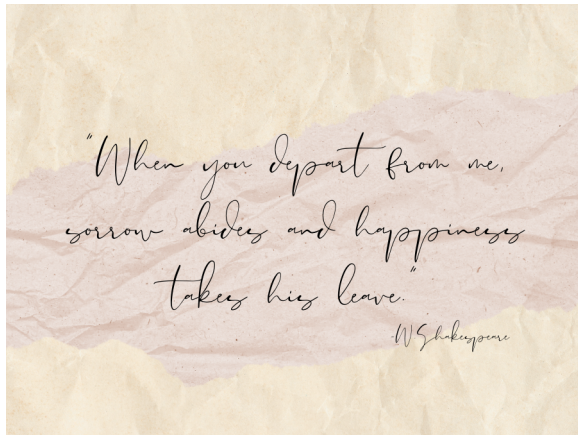 "When you depart from me,
sorrow abides and happiness
takes his leave."
-W Shakespeare